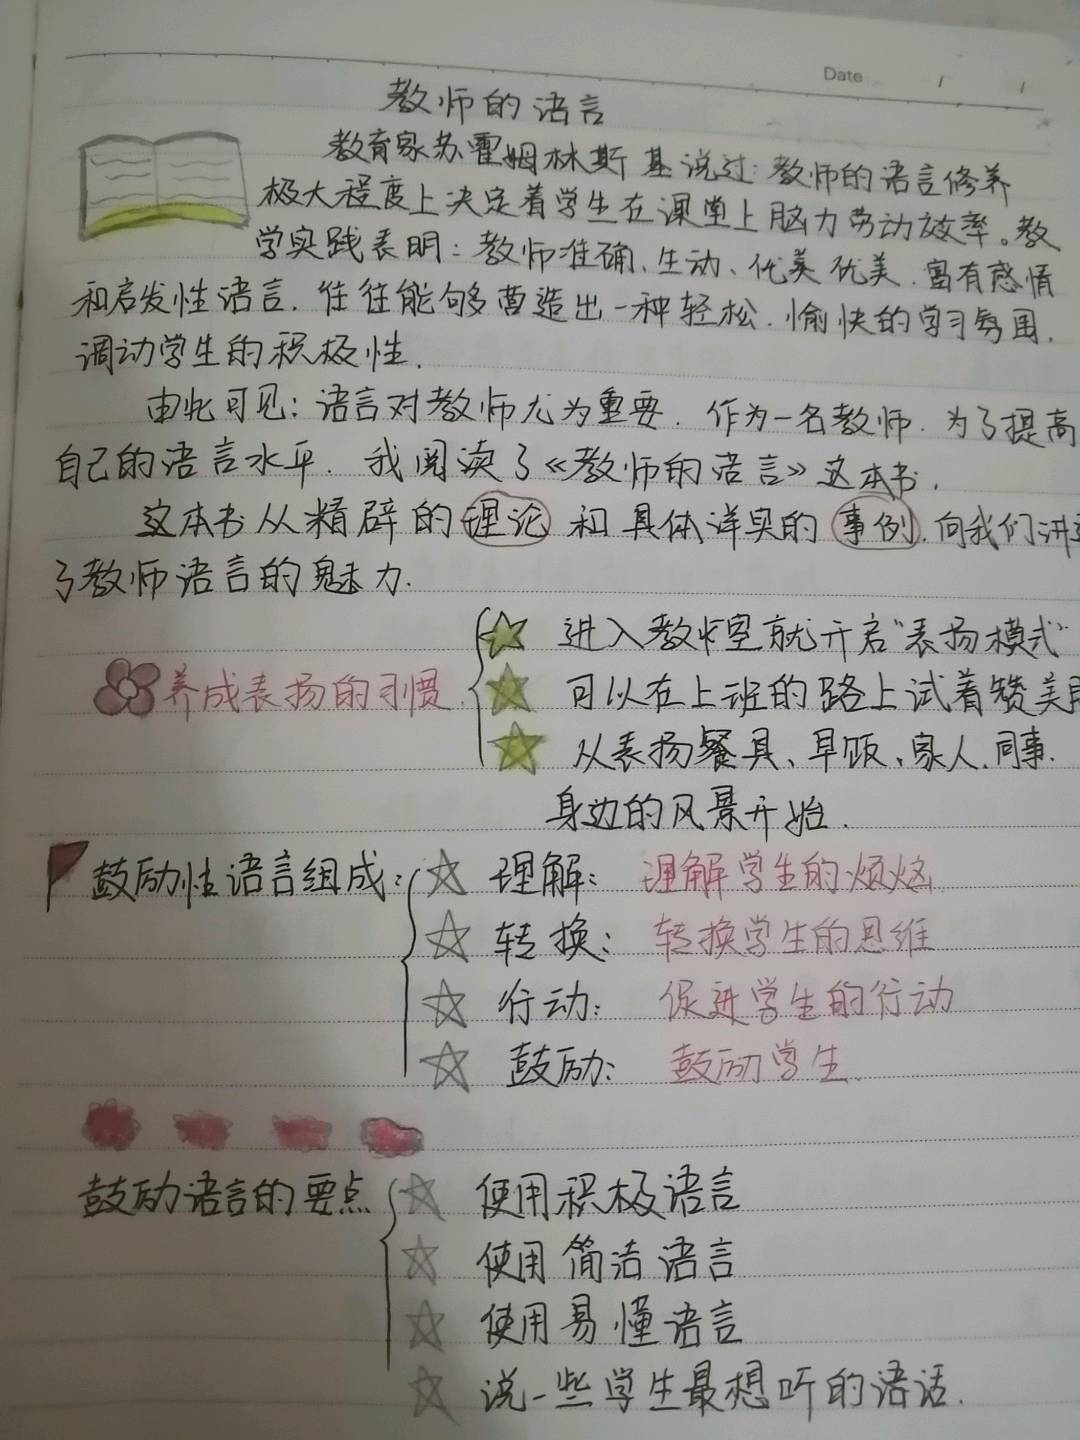 Date / /
教师的语言
教育家苏霍姆林斯基说过:教师的语言修养
极大程度上决定着学生在课堂上脑力劳动效率。教
学实践表明:教师准确、生动、优美优美、富有感情
和启发性语言,往往能够营造出一种轻松、愉快的学习氛围,
调动学生的积极性.
由此可见:语言对教师尤为重要.作为一名教师.为了提高
自己的语言水平.我阅读了《教师的语言》这本书.
这本书从精辟的理论和具体详实的事例.向我们讲述
了教师语言的魅力.
进入教室就开启"表扬模式"
养成表扬的习惯 可以在上班的路上试着赞美
从表扬餐具、早饭、家人、同事.
身边的风景开始.
鼓励性语言组成: 理解: 理解学生的烦恼
转换: 转换学生的思维
行动: 促进学生的行动
鼓励: 鼓励学生.
鼓励语言的要点 使用积极语言
使用简洁语言
使用易懂语言
说一些学生最想听的语话.